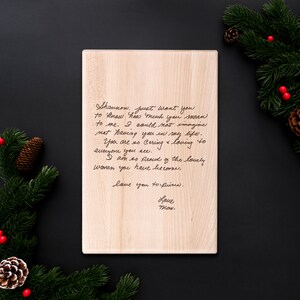 Shannon, just want you
to know how much you mean
to me. I could not imagine
not having you in my life.
You are so caring & loving to
everyone you see.
I am so proud of the lovely
woman you have become.
Love you to pieces.
Love
Mom.